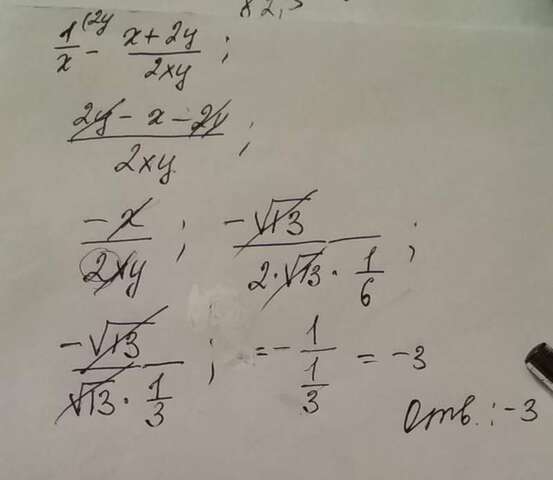 1/x (2y - x+2y/2xy ;
2y - x - 2y/2xy ;
-x/2xy ; -√13/2·√13·1/6 ;
-√13/√13·1/3 ; = -1/(1/3) = -3
Отв.: -3